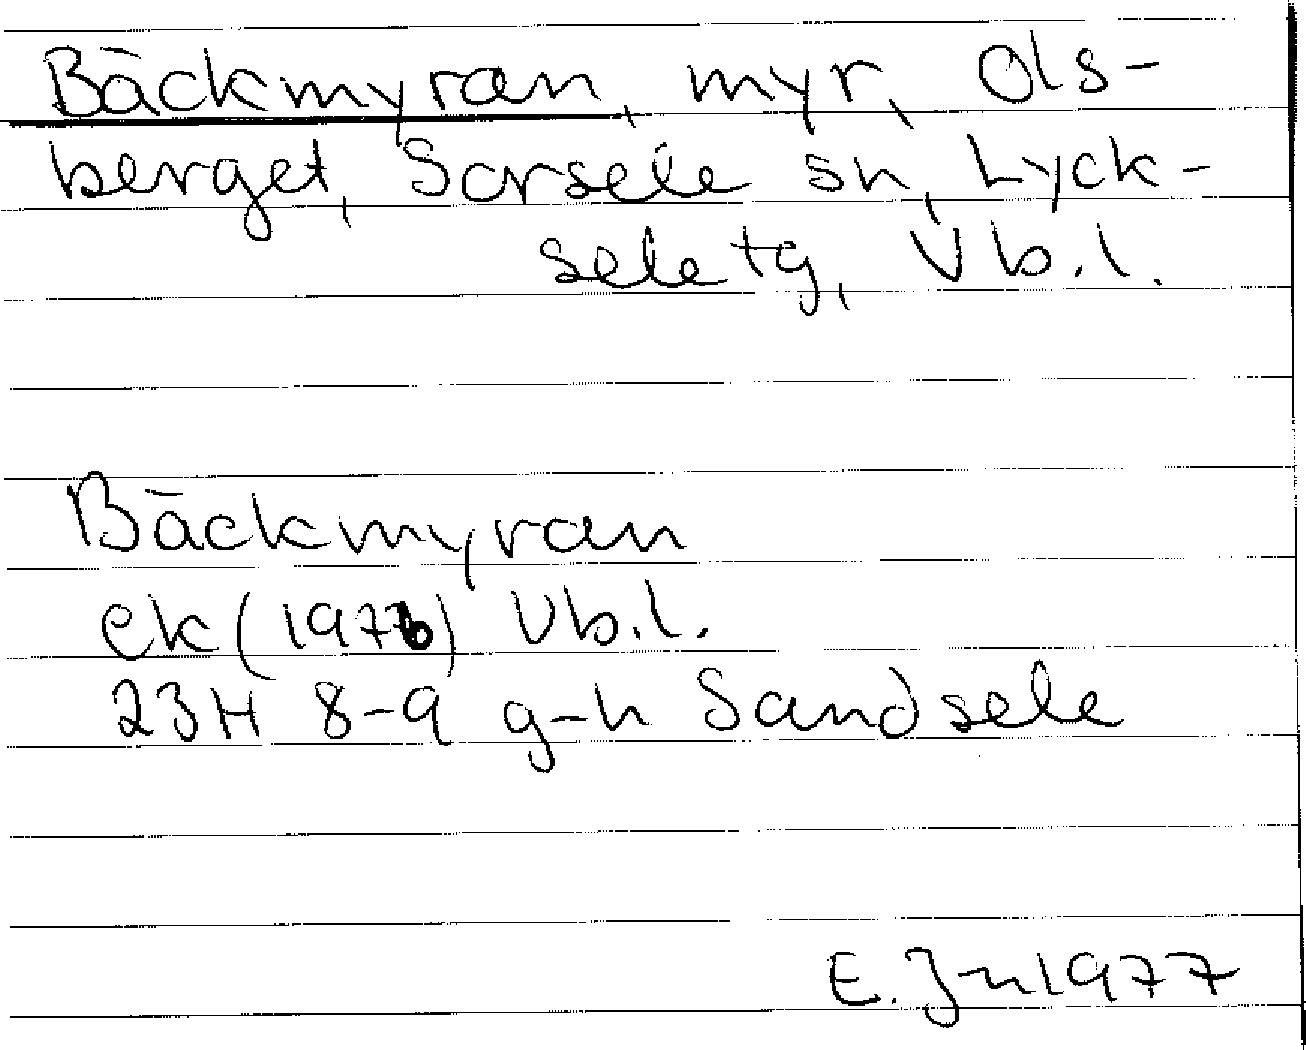 Bäckmyran, myr, Ols-
berget, Sorsele sn, Lyck-
sele tg, Vb.l.
Bäckmyran
ek (1976) Vb.l.
23H 8-9 g-h Sandsele
E. Jn 1977